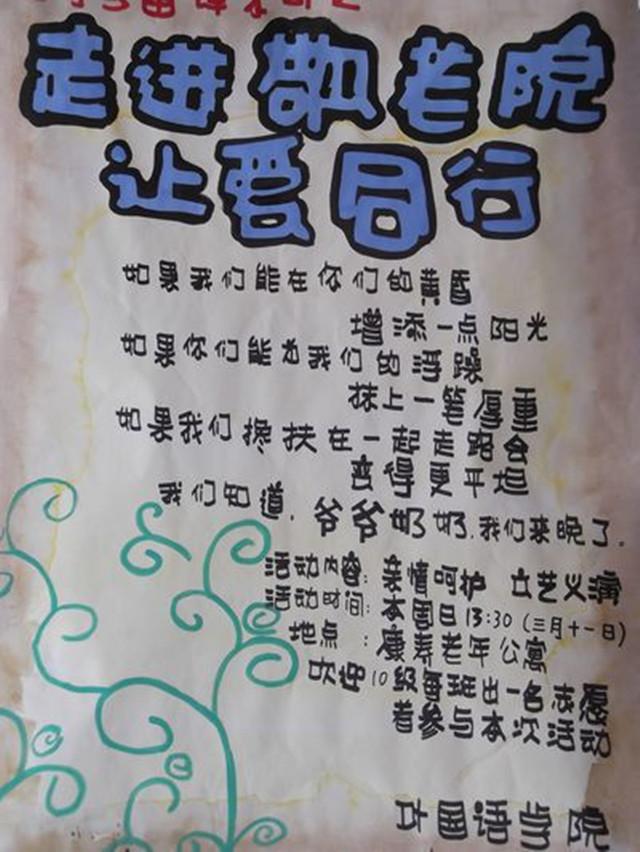 走进敬老院
让爱同行
如果我们能在你们的黄昏
增添一点阳光
如果你们能为我们的浮躁
抹上一笔厚重
如果我们搀扶在一起走路会
变得更平坦
我们知道，爷爷奶奶，我们来晚了。
活动内容：亲情呵护 文艺义演
活动时间：本周日13:30(三月十一日)
地点：康寿老年公寓
欢迎10级每班出一名志愿
者参与本次活动
外国语学院